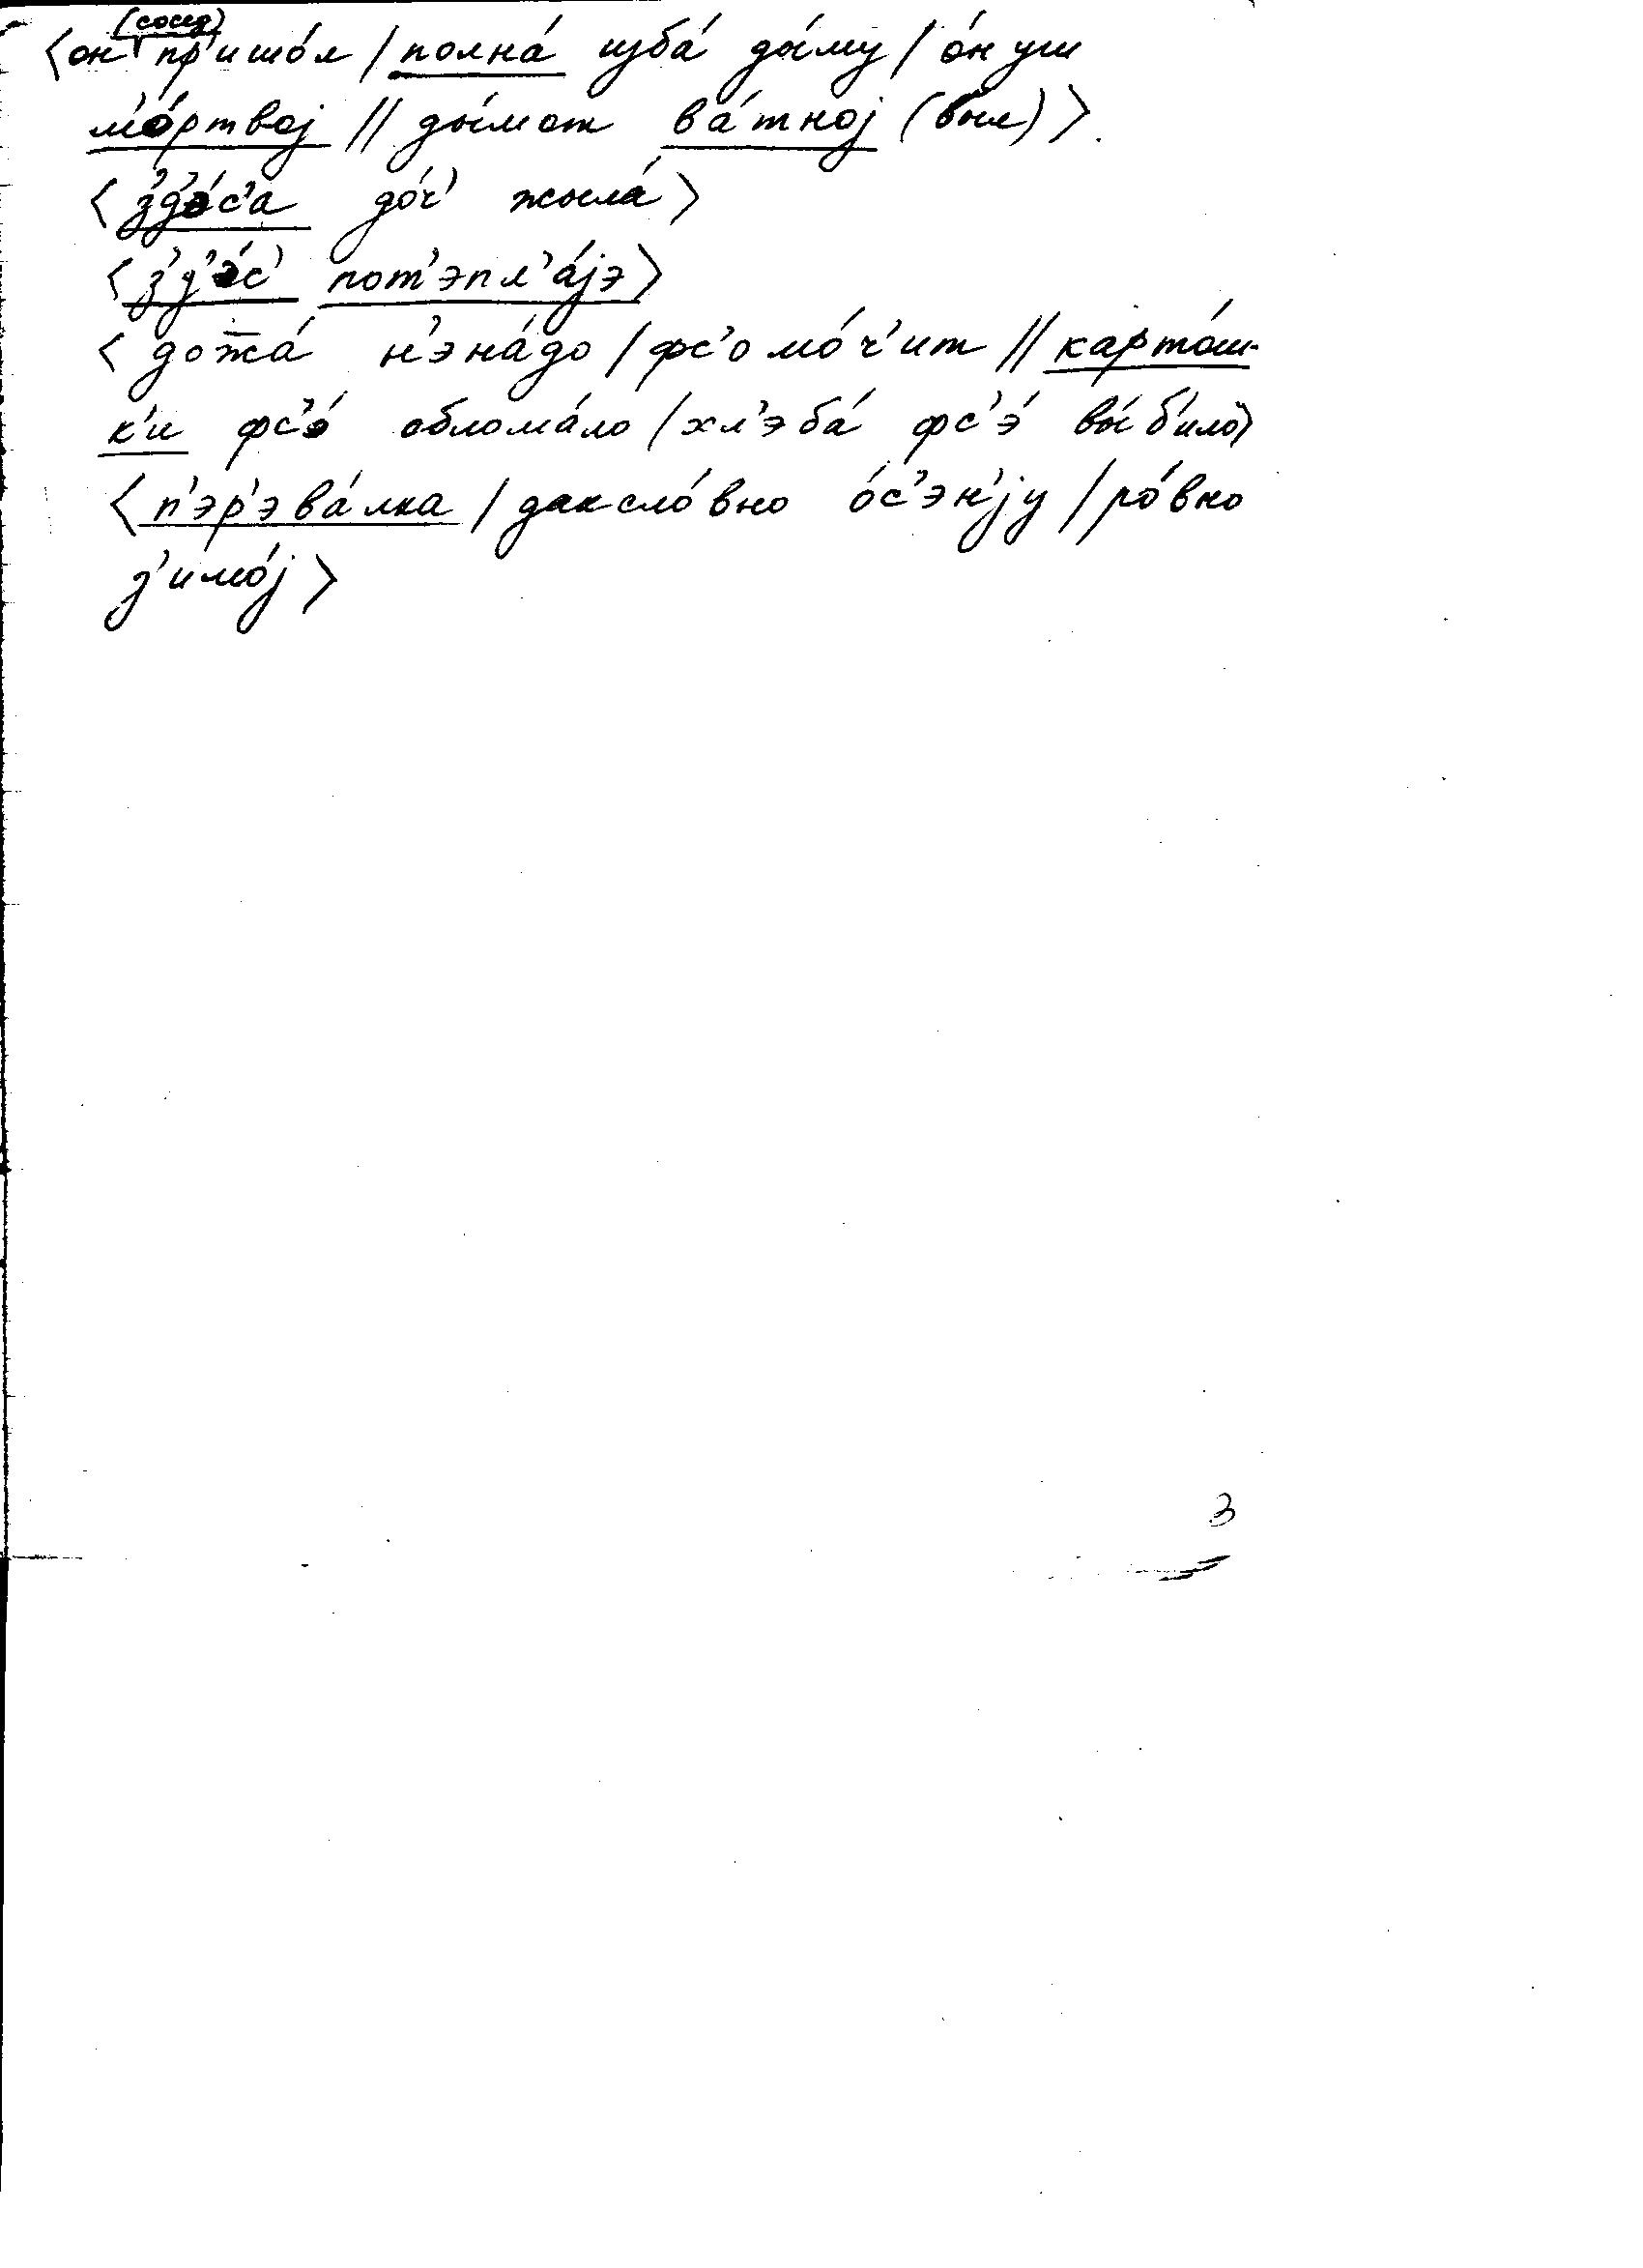 (сосед)
⟨он пр'ишо́л / полна́ изба́ ды́му / о́н уш
м'о́ртвој // ды́мот ва́тној (был)⟩.
⟨з'д'э́с'а до́ч' жыла́⟩
⟨з'д'э́с' пот'эпл'а́јэ⟩
⟨дож̅а́ н'эна́до / фс'о мо́ч'ит // карто́ш-
к'и фс'э́ облома́ло / хл'эба́ фс'э́ вы́б'ило⟩
⟨п'эр'эва́лка / даксло́вно о́с'эн'jу / ро́вно
з'имо́ј⟩
3